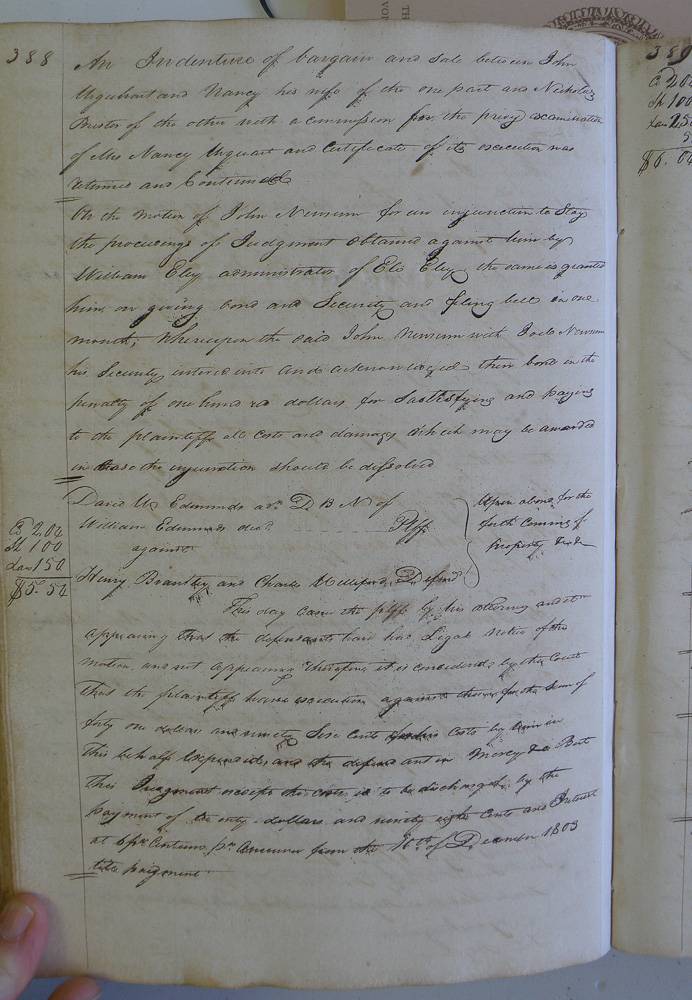 388
An Indenture of bargain and sale between John
Urquhart and Nancy his wife of the one part and Nicholas
of the other with a commission for the privy examination
of Mrs Nancy Urquart and Certificate of its execution was
returned and Continued
On the motion of John Newsum for an injunction to Stay
the proceedings of Judgment obtained against him by
William Eley administrator of Eli Eley the same is granted
him on giving bond and Security and filing bill in one
month, Whereupon the said John Newsum with Joel Newsum
his Security entered into and acknowledged their bond in the
penalty of one hund red dollars for Sattisfying and paying
to the plaintiff all costs and damages which may be awarded
in Case the injunction should be dissolved
David W Edmunds adr. D B N of
William Edmunds decd. Plff
against
Henry Brantley and Charles Defend
Upon a bond for the
forth Coming of
Property &c
Co 2.04
Sh 1 00
Law 1 50
$5. 54
This day Came the plff by his attorney and it
appearing that the defendants have had Legal Notice of this
motion and not appearing Therefore it is considered by the Court
That the plaintiff have execution against them for the Sum of
forty one dollars and ninety Six Cents costs by him in
this behalf Expended and the defend ant in Mercy &c But
this Judgment except the costs is to be discharged by the
payment of twenty dollars and ninety eight Cents and Interest
at 6 pr Centum pr annum from the 16th of December 1803
till payment
389
Co 2 04
Sh 1 00
Law 2.50
$6. 04